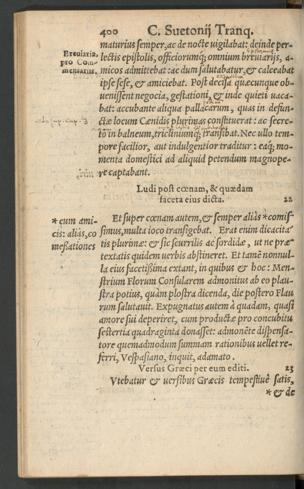 400 C. Suetonij Tranq.
maturius semper, ac de nocte uigilabat: deinde per-
Breuiaria, pro Com mentarijs.
lectis epistolis, officiorumq́; omnium breuiarijs, a-
micos admittebat: ac dum salutabatur, & calceabat
ipse sese, & amiciebat. Post decisa quæcunque ob-
uenissent negocia, gestationi, & inde quieti uaca-
bat: accubante aliqua pallicarum, quas in defun-
ctæ locum Cænidis plurimas constituerat: ac secre-
to in balneum, tricliniumq́; transibat. Nec ullo tem-
pore facilior, aut indulgentior traditur: eaq́; mo-
menta domestici ad aliquid petendum magnope-
re captabant.
Ludi post cœnam, & quædam
faceta eius dicta. 22
* cum ami-
cis: aliàs, co
meßationes
Et super cœnam autem, & semper aliàs * comis-
simus, multa ioco transigebat. Erat enim dicacita-
tis plurimæ: & sic scurrilis ac sordidæ, ut ne præ-
textatis quidem uerbis abstineret. Et tamē nonnul-
la eius facetißima extant, in quibus & hoc: Men-
strium Florum Consularem admonitus ab eo plau-
stra potius, quàm plostra dicenda, die postero Flau
rum salutauit. Expugnatus autem à quadam, quasi
amore sui deperiret, cum productæ pro concubitu
sestertia quadraginta donasset: admonēte dispensa-
tore quemadmodum summam rationibus uellet re-
ferri, Vespasiano, inquit, adamato.
Versus Græci per eum editi. 23
Vtebatur & uersibus Græcis tempestiuè satis,
* & de